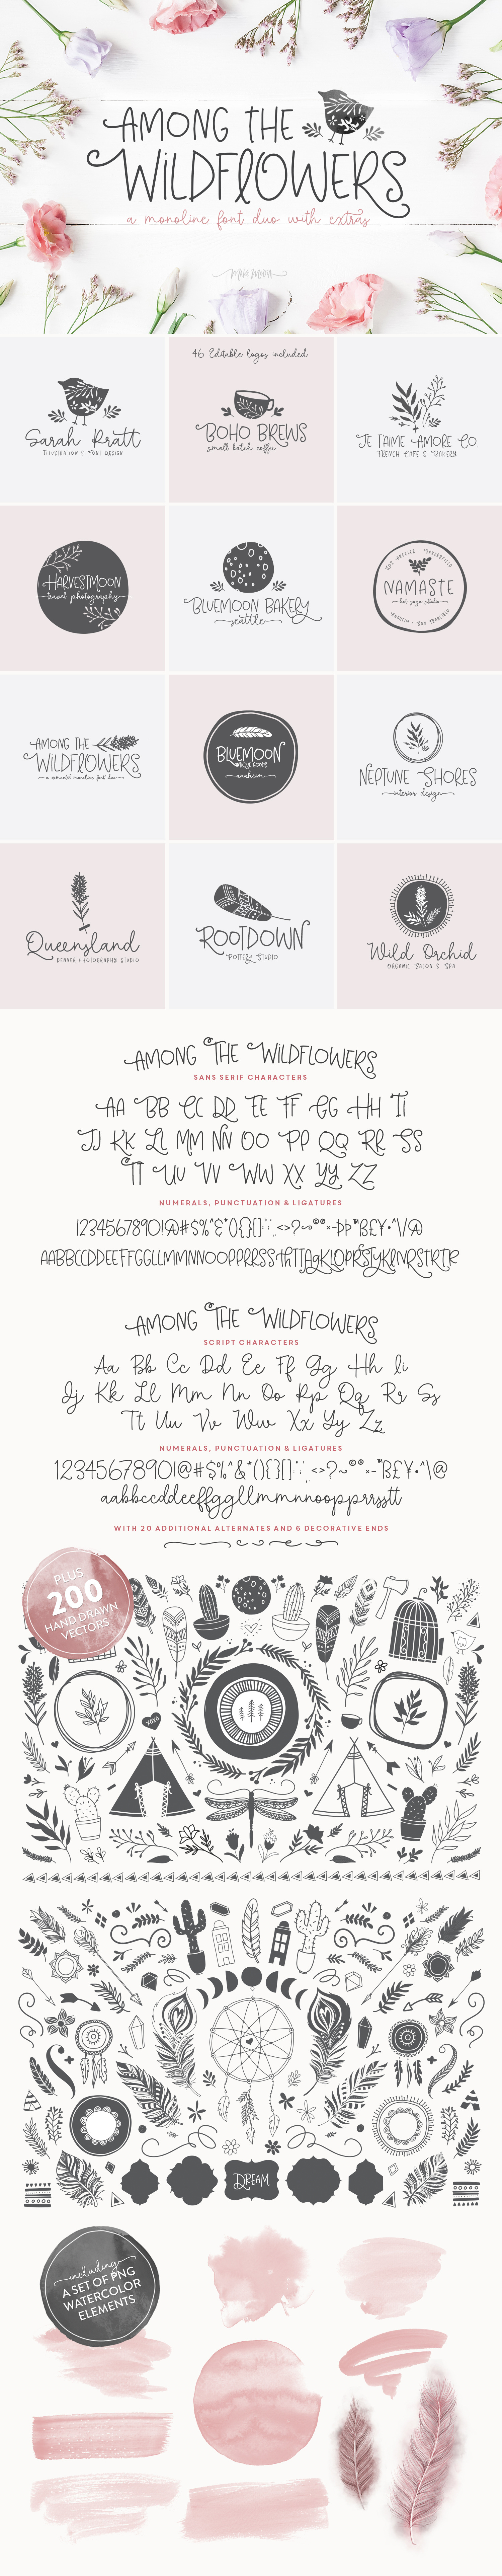 AMONG THE
WILDFLOWERS
a monoline font duo with extras
46 Editable logos included
Sarah Pratt
ILLUSTRATION & FONT DESIGN
BOHO BREWS
small batch coffee
JE T'AIME AMORE CO.
FRENCH CAFE & BAKERY
HARVESTMOON
travel photography
BLUEMOON BAKERY
seattle
LOS ANGELES · BAKERSFIELD
NAMASTE
hot yoga studio
ANAHEIM · SAN FRANCISCO
AMONG THE
WILDFLOWERS
a romantic monoline font duo
BLUEMOON
HOME GOODS
anaheim
NEPTUNE SHORES
interior design
Queensland
DENVER PHOTOGRAPHY STUDIO
ROOTDOWN
POTTERY STUDIO
Wild Orchid
ORGANIC SALON & SPA
AMONG THE WILDFLOWERS
SANS SERIF CHARACTERS
AA BB CC DD EE FF GG HH II
JJ KK LL MM NN OO PP QQ RR SS
TT UU VV WW XX YY ZZ
NUMERALS, PUNCTUATION & LIGATURES
AMONG THE WILDFLOWERS
SCRIPT CHARACTERS
Aa Bb Cc Dd Ee Ff Gg Hh Ii
Jj Kk Ll Mm Nn Oo Pp Qq Rr Ss
Tt Uu Vv Ww Xx Yy Zz
NUMERALS, PUNCTUATION & LIGATURES
aabbccddeeffggllmmnnoopprrsstt
WITH 20 ADDITIONAL ALTERNATES AND 6 DECORATIVE ENDS
PLUS
200
HAND DRAWN
VECTORS
DREAM
including
A SET OF PNG
WATERCOLOR
ELEMENTS